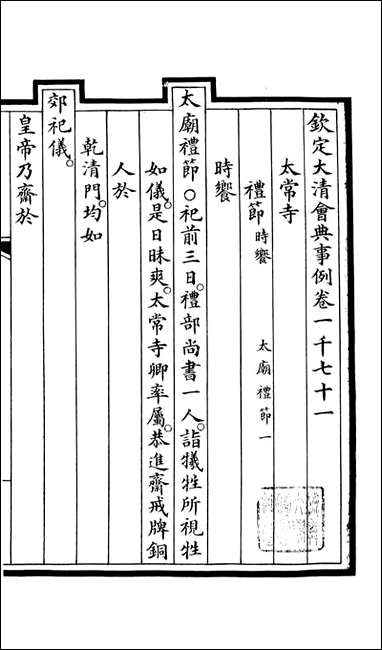 欽定大清會典事例卷一千七十一
太常寺
禮節 時饗 太廟禮節一
時饗
太廟禮節○祀前三日。禮部尚書一人。詣犧牲所視牲
如儀。是日昧爽。太常寺卿率屬。恭進齋戒牌銅
人於
乾清門。均如
郊祀儀。
皇帝乃齋於